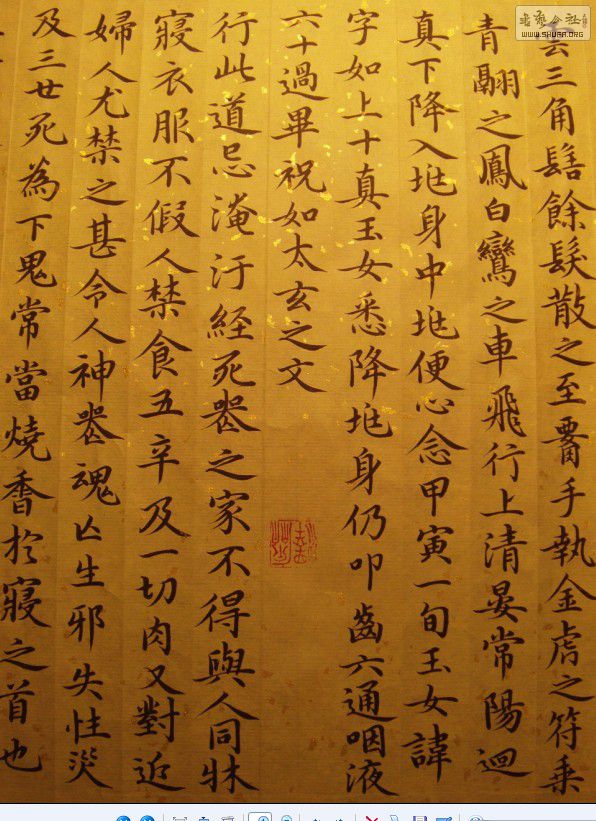 雲三角髻餘髮散之至腰手執金虎之符乗
青翮之鳳白鸞之車飛行上清晏常陽迴
真下降入地身中地便心念甲寅一旬玉女諱
字如上十真玉女悉降地身仍叩齒六通咽液
六十過畢祝如太玄之文
行此道忌淹汙經死喪之家不得與人同牀
寢衣服不假人禁食五辛及一切肉又對近
婦人尤禁之甚令人神喪魂亡生邪失性災
及三世死為下鬼常當燒香於寢之首也
WWW.SHUFA.ORG